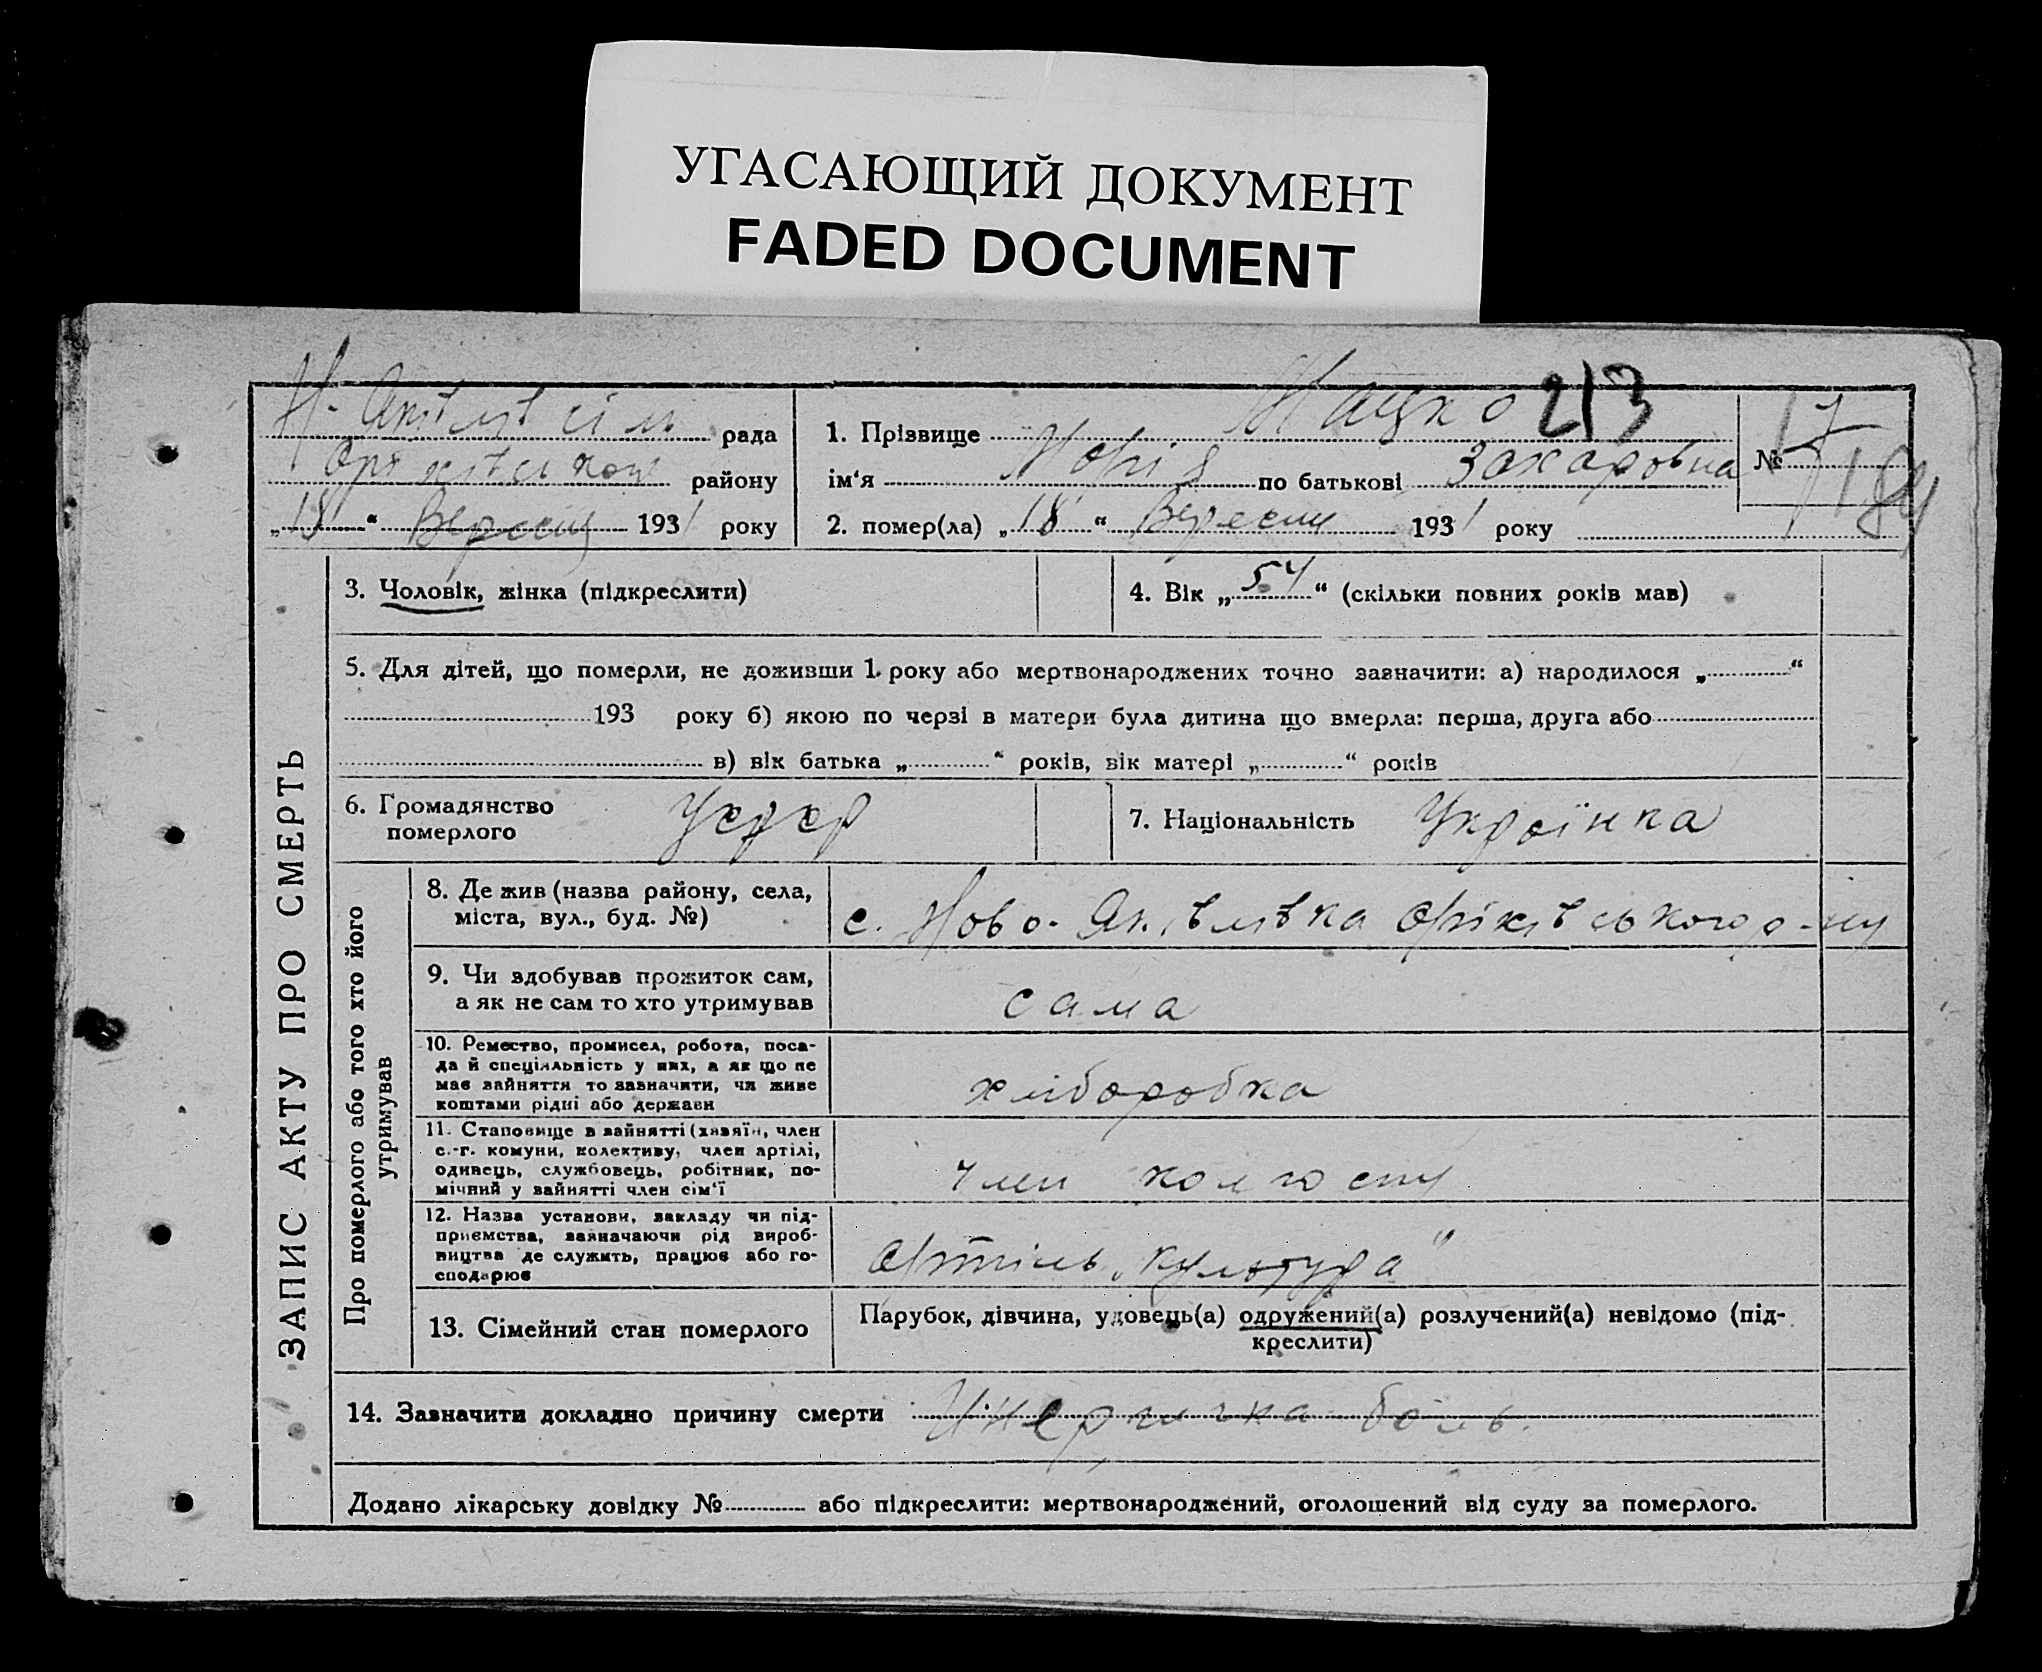 УГАСАЮЩИЙ ДОКУМЕНТ
FADED DOCUMENT
213
Н. рада
району
„18“ Вересня 1931 року
1. Прізвище Нацко
ім'я Марія по батькові Захаровна
№ 17
184
2. помер(ла) „18“ Вересня 1931 року
ЗАПИС АКТУ ПРО СМЕРТЬ
3. Чоловік, жінка (підкреслити)
4. Вік „54“ (скільки повних років мав)
5. Для дітей, що померли, не доживши 1 року або мертвонароджених точно зазначити: а) народилося „ “
193 року б) якою по черзі в матери була дитина що вмерла: перша, друга або
в) вік батька „ “ років, вік матері „ “ років
6. Громадянство
померлого
УСРСР
7. Національність Українка
Про померлого або того хто його
утримував
8. Де жив (назва району, села,
міста, вул., буд. №)
с. Ново-Яківлівка Оріхівського р-ну
9. Чи здобував прожиток сам,
а як не сам то хто утримував
сама
10. Ремество, промисел, робота, поса-
да й спеціяльність у них, а як що не
має зайняття то зазначити, чи живе
коштами рідні або держави
хліборобка
11. Становище в зайнятті (хазяїн, член
с.-г. комуни, колективу, член артілі,
одинець, службовець, робітник, по-
мічний у зайнятті член сім'ї
член колгоспу
12. Назва установи, закладу чи під-
приємства, зазначаючи рід вироб-
ництва де служить, працює або го-
сподарює
Артіль „Культура“
13. Сімейний стан померлого
Парубок, дівчина, удовець(а) одружений(а) розлучений(а) невідомо (під-
креслити)
14. Зазначити докладно причину смерти
Додано лікарську довідку № або підкреслити: мертвонароджений, оголошений від суду за померлого.